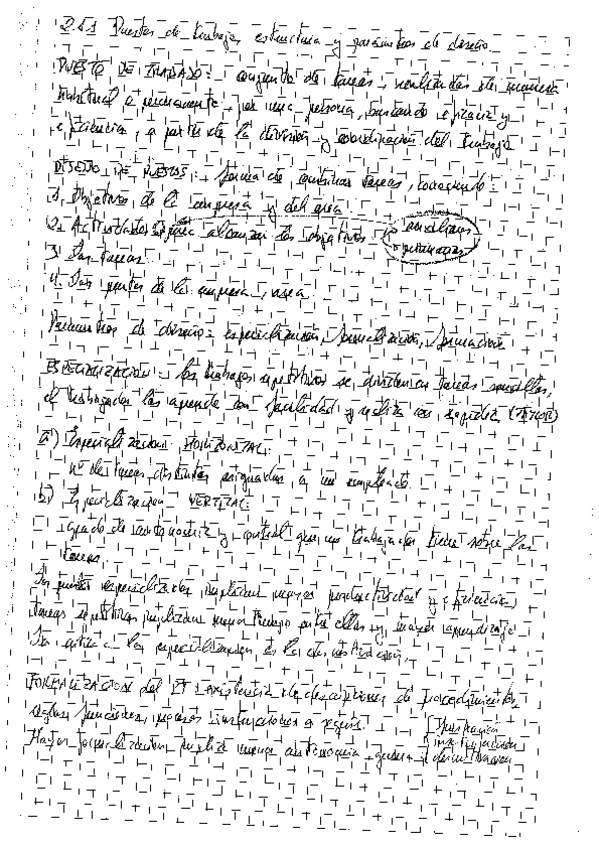 2.1.1 Puestos de trabajo, estructura y parámetros de diseño.
PUESTO DE TRABAJO: conjunto de tareas, realizadas de manera
habitual o permanente por una persona, buscando eficacia y
eficiencia, a partir de la división y coordinación del trabajo
DISEÑO DE PUESTOS: forma de combinar tareas, conociendo:
1. Objetivos de la empresa y del área
2. Actividades para alcanzar los objetivos auxiliares operativas
3. Las tareas
4. Los puestos de la empresa, área.
Parámetros de diseño: especialización, formalización, formación
ESPECIALIZACIÓN: los trabajos repetitivos se dividen en tareas sencillas,
el trabajador las aprende con facilidad y realiza con rapidez
a) Especialización HORIZONTAL:
nº de tareas distintas asignadas a un empleado
b) Especialización VERTICAL:
grado de autonomía y control que un trabajador tiene sobre las
tareas.
Los puestos especializados implican mayor productividad y eficiencia,
tareas repetitivas implican menor tiempo entre ellas y mayor aprendizaje
La crítica a la especialización es la desmotivación.
FORMALIZACIÓN del PT: existencia de descripciones de procedimientos
reglas, funciones, procesos, instrucciones a seguir.
Mayor formalización implica menor autonomía, genera frustración